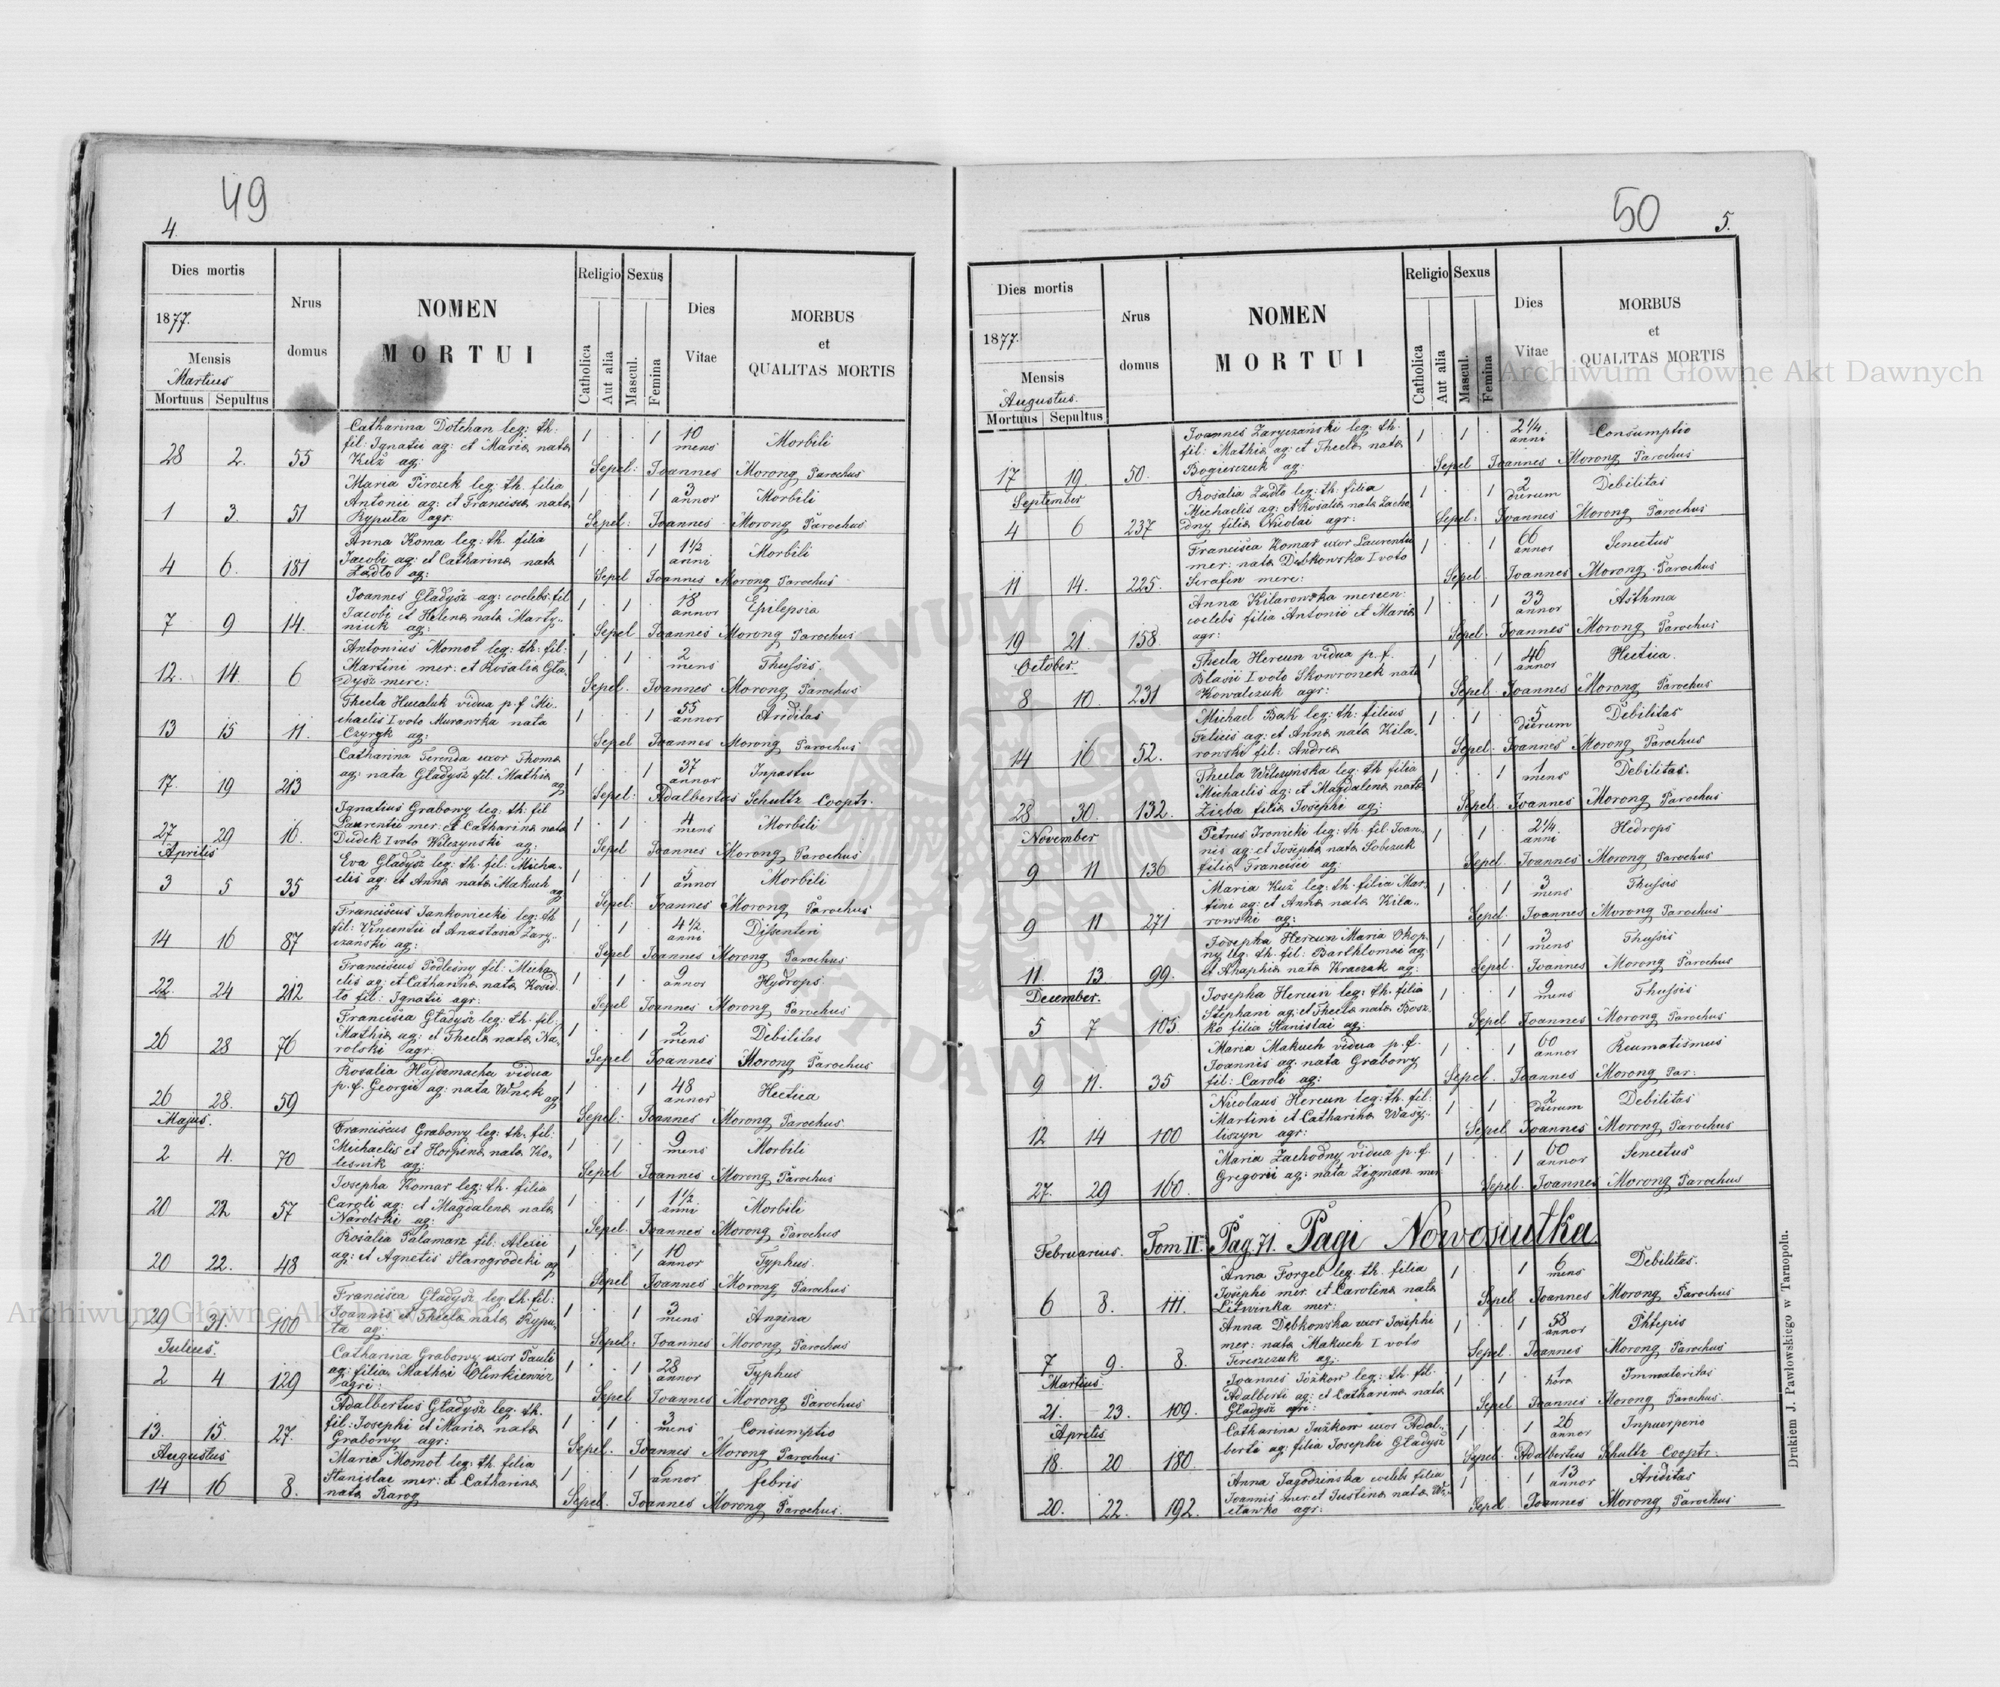 49
4.
Dies mortis
1877.
Mensis
Martius
Mortuus Sepultus
Nrus
domus
NOMEN
MORTUI
Religio
Sexus
Catholica
Aut alia
Mascul.
Femina
Dies
Vitae
MORBUS
et
QUALITAS MORTIS
Catharina Dotchan leg: th:
fil: Ignatii ag: et Maria nata 1 . . 1 10 mens Morbili
28 2. 55 Kuź ag: Sepel: Joannes Morong Parochus
Maria Pirozek leg: th. filia
Antonii ag: et Francisca nata 1 . . 1 3 annor Morbili
1 3. 51 Ryputa agr: Sepel: Joannes Morong Parochus
Anna Koma leg: th. filia
Jacobi ag: et Catharina nata 1 . . 1 1½ anni Morbili
4 6. 181 Zadło ag: Sepel Joannes Morong Parochus
Joannes Gładysz ag: coelebs: fil
Jacobi et Helena nata Marty- 1 . 1 . 18 annor Epilepsia
7 9 14. niuk ag: Sepel Joannes Morong Parochus
Antonius Momot leg: th: fil:
Martini mer: et Rosalia Gła- 1 . 1 . 2 mens Thussis
12. 14. 6 dysz merc: Sepel. Joannes Morong Parochus
Thecla Hucaluk vidua p.f Mi-
chaelis I voto Murawska nata 1 . . 1 55 annor Ariditas
13 15 11. Czyryk ag: Sepel Joannes Morong Parochus
Catharina Ferenda uxor Thoma
ag: nata Gładysz fil. Mathia ag 1 . . 1 37 annor Inpastu
17. 19 213 Sepel: Adalbertus Schultz Cooptr.
Ignatius Grabowy leg: th: fil
Laurentii mer: et Catharina nata 1 . 1 . 4 mens Morbili
27 29 16. Dudek I voto Wilczynski ag: Sepel Joannes Morong Parochus
Aprilis
Eva Gładysz leg: th. fil: Micha-
elis ag: et Anna nata Makuch ag 1 . . 1 5 annor Morbili
3 5 35 Sepel: Joannes Morong Parochus
Franciscus Jankowiecki leg: th
fil: Vincentii et Anastasia Zary- 1 . 1 . 4½ anni Dissenteri
14 16 87 czanski ag: Sepel Joannes Morong Parochus
Franciscus Podleśny fil: Micha
elis ag: et Catharina nata Kosid- 1 . 1 . 9 annor Hydrops
22. 24 212 to fil: Ignatii agr: Sepel Joannes Morong Parochus
Francisca Gładysz leg: th. fil:
Mathia ag: et Thecla nata Na- 1 . . 1 2 mens Debilitas
26 28 76 rolski agr. Sepel Joannes Morong Parochus
Rosalia Hajdamacha vidua
p.f. Georgii ag: nata Wnęk ag 1 . . 1 48 annor Hectica
26 28. 59 Sepel: Joannes Morong Parochus
Majus.
Franciscus Grabowy leg: th. fil:
Michaelis et Horpina nata Ko- 1 . 1 . 9 mens Morbili
2 4. 70 lesnik ag: Sepel Joannes Morong Parochus
Josepha Komar leg: th. filia
Caroli ag: et Magdalena nata 1 . . 1 1½ anni Morbili
20 22 57 Narolski ag: Sepel: Joannes Morong Parochus
Rosalia Palamarz fil: Alexii
ag: et Agnetis Starogrodcki ag 1 . . 1 10 annor Typhus
20 22. 48 Sepel Joannes Morong Parochus
Francisca Gładysz leg: th. fil:
Joannis et Thecla nata Rypu- 1 . . 1 3 mens Angina
29 31. 100 ta ag: Sepel: Joannes Morong Parochus
Julius.
Catharina Grabowy uxor Pauli
ag: filia Mathei Olinkiewicz 1 . . 1 28 annor Typhus
2 4 129 agri: Sepel Joannes Morong Parochus
Adalbertus Gładysz leg: th.
fil: Josephi et Maria nata 1 . 1 . 3 mens Consumptio
13. 15. 27. Grabowy agr: Sepel. Joannes Morong Parochus
Augustus
Maria Momot leg: th. filia
Stanislai mer: et Catharina 1 . . 1 6 annor febris
14 16 8. nata Rarog Sepel. Joannes Morong Parochus.
50
5.
Dies mortis
1877.
Mensis
Augustus.
Mortuus Sepultus
Nrus
domus
NOMEN
MORTUI
Religio
Sexus
Catholica
Aut alia
Mascul.
Femina
Dies
Vitae
MORBUS
et
QUALITAS MORTIS
Joannes Zaryczański leg: th.
fil: Mathia ag: et Thecla nata 1 . 1 . 2¼ anni Consumptio
17 19 50. Bogierczuk ag: Sepel Joannes Morong Parochus
September
Rosalia Zadło leg: th: filia
Michaelis ag: et Rosalia nata Zacho 1 . . 1 2 dierum Debilitas
4 6 237 dny filia Nicolai agr: Sepel: Joannes Morong Parochus
Francisca Komar uxor Laurentii
mer: nata Dębkowska I voto 1 . . 1 66 annor Senectus
11 14. 225. Serafin merc: Sepel Joannes Morong Parochus
Anna Kilarowska mercen:
coelebs filia Antonii et Maria 1 . . 1 33 annor Asthma
19 21. 158 agr: Sepel. Joannes Morong Parochus
October.
Thecla Hercun vidua p.f.
Blasii I voto Skowronek nata 1 . . 1 46 annor Hectica.
8 10. 231 Kowalczuk agr: Sepel. Joannes Morong Parochus
Michael Bąk leg: th: filius
Felicis ag: et Anna nata Kila- 1 . 1 . 5 dierum Debilitas
14 16 52. rowski fil: Andrea Sepel. Joannes Morong Parochus
Thecla Wilczyńska leg: th filia
Michaelis ag: et Magdalena nata 1 . . 1 1 mens Debilitas.
28 30. 132. Zięba filia Josephi ag: Sepel. Joannes Morong Parochus
November
Petrus Fronicki leg: th: fil: Joan-
nis ag: et Josepha nata Sobczuk 1 . 1 . 2¼ anni Hidrops
9 11 136 filia Francisci ag: Sepel. Joannes Morong Parochus
Maria Kuź leg: th. filia Mar-
tini ag: et Anna nata Kila- 1 . . 1 3 mens Thussis
9 11 271 rowski ag: Sepel. Joannes Morong Parochus
Josepha Hercun Maria Okop-
ny leg: th. fil: Barthlomei ag: 1 . . 1 3 mens Thussis
11. 13. 99. et Ahaphia nata Kraczak ag: Sepel. Joannes Morong Parochus
December.
Josepha Hercun leg: th. filia
Stephani ag: et Thecla nata Bosz- 1 . . 1 9 mens Thussis
5 7 105 ko filia Stanislai ag: Sepel Joannes Morong Parochus
Maria Makuch vidua p.f.
Joannis ag: nata Grabowy 1 . . 1 60 annor Reumatismus
9 11. 35 fil: Caroli ag: Sepel. Joannes Morong Par:
Nicolaus Hercun leg: th. fil:
Martini et Catharina Wasy- 1 . 1 . 2 dierum Debilitas
12 14 100 liszyn agr: Sepel Joannes Morong Parochus
Maria Zachodny vidua p.f.
Gregorii ag: nata Zigman mer. 1 . . 1 60 annor Senectus
27. 29 160. Sepel. Joannes Morong Parochus
Februarius. Tom II. Pag. 71. Pagi Nowosiutka
Anna Forgel leg. th. filia
Josephi mer. et Carolina nata 1 . . 1 6 mens Debilitas.
6 8. 111. Litwinka mer: Sepel Joannes Morong Parochus
Anna Dębkowska uxor Josephi
mer: nata Makuch I voto 1 . . 1 58 annor Phtepis
7 9. 8. Tereszczuk ag: Sepel. Joannes Morong Parochus
Martius.
Joannes Jóżkow leg: th. fil.
Adalberti ag: et Catharina nata 1 . 1 . 1 hora Immatoritas
21. 23. 109. Gładysz agri: Sepel Joannes Morong Parochus
Aprilis
Catharina Jużkow uxor Adal-
berti ag: filia Josephi Gładysz 1 . . 1 26 annor Inpuerperio
18. 20 180. Sepel. Adalbertus Schultz Cooptr.
Anna Jagodzińska coelebs filia
Joannis mer: et Justina nata Wi- 1 . . 1 13 annor Ariditas
20. 22. 192. etawko agr: Sepel Joannes Morong Parochus
Drukiem J. Pawłowskiego w Tarnopolu.
Archiwum Główne Akt Dawnych
Archiwum Główne Akt Dawnych